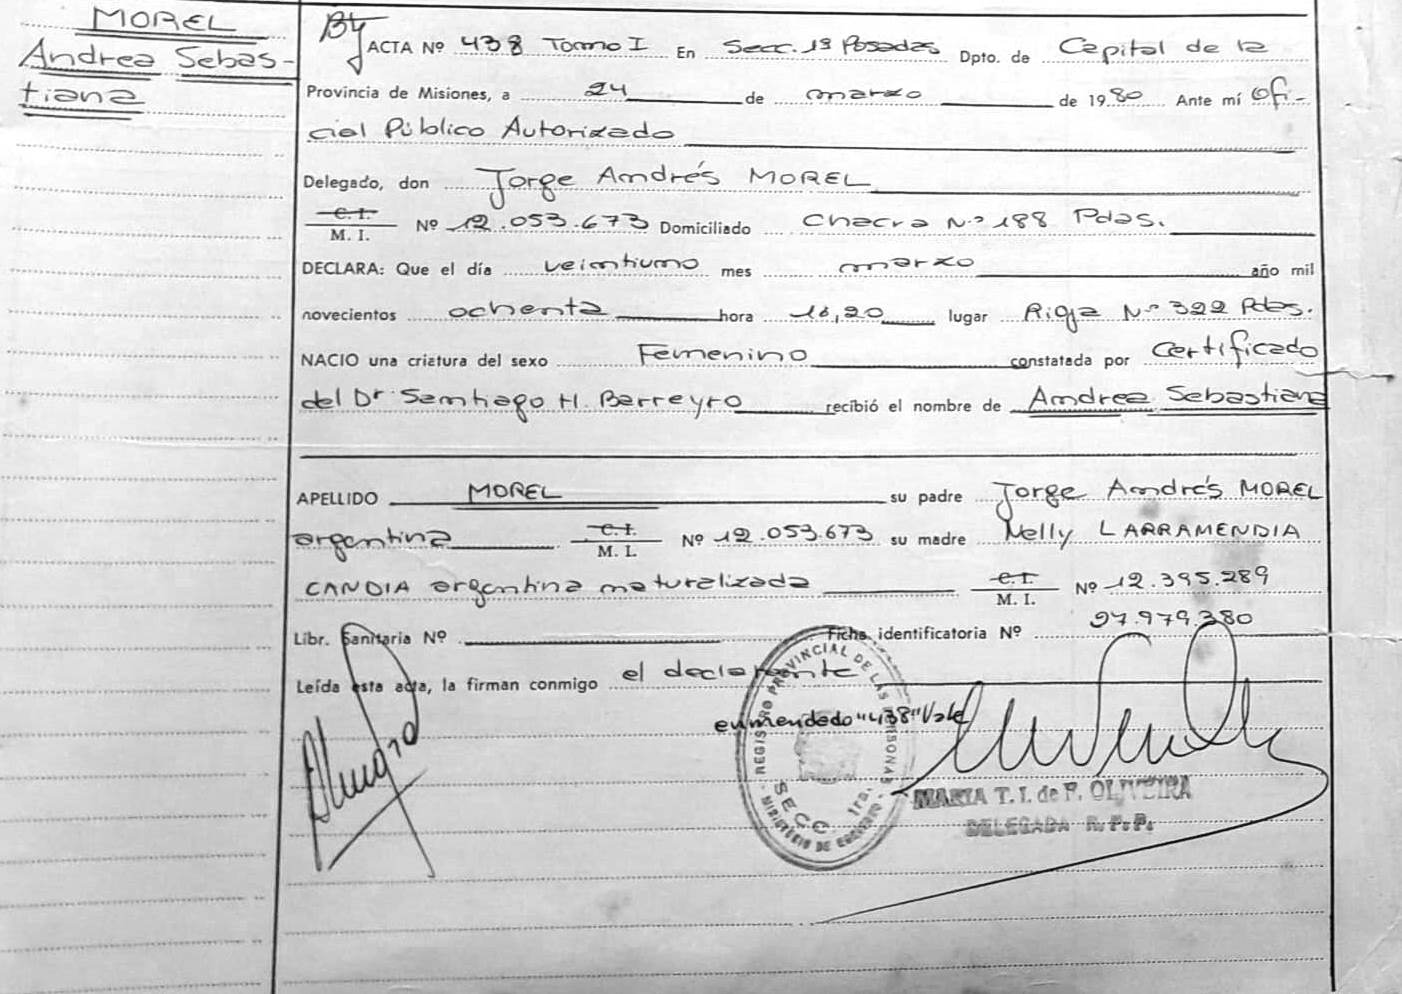 MOREL
Andrea Sebas-
tiana
ACTA Nº 438 Tomo I En Secc. 1ª Posadas Dpto. de Capital de la
Provincia de Misiones, a 24 de marzo de 1980 Ante mí Ofi-
cial Público Autorizado
Delegado, don Jorge Andrés MOREL
C.I.
M. I. Nº 12.053.673 Domiciliado Chacra Nº 188 Pdas.
DECLARA: Que el día veintiuno mes marzo año mil
novecientos ochenta hora 16,20 lugar Rioja Nº 322 Pdas.
NACIO una criatura del sexo Femenino constatada por Certificado
del Dr. Santiago H. Barreyro recibió el nombre de Andrea Sebastiana
APELLIDO MOREL su padre Jorge Andrés MOREL
argentina C.I.
M. I. Nº 12.053.673 su madre Nelly LARRAMENDIA
CANDIA argentina naturalizada C.I.
M. I. Nº 12.395.289
Libr. Sanitaria Nº Ficha identificatoria Nº 27.979.380
Leída esta acta, la firman conmigo el declarante
enmendado "438" Vale
REGISTRO PROVINCIAL DE LAS PERSONAS
SECC. 1ra.
MINISTERIO DE GOBIERNO
MARIA T. I. de F. OLIVEIRA
DELEGADA R. P. P.